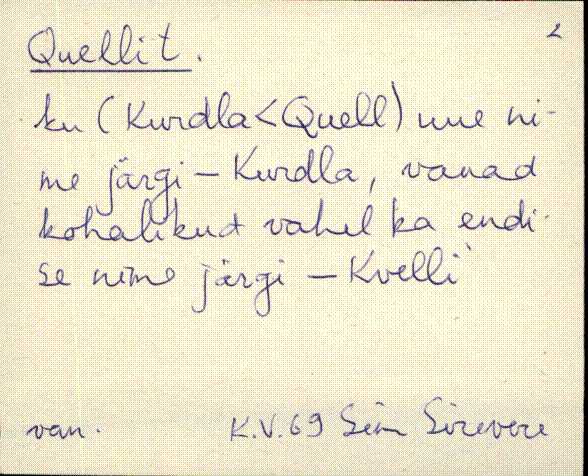 2
Quellit.
ku (Kurdla<Quell) uue ni-
me järgi – Kurdla, vanad
kohalikud vahel ka endi-
se nime järgi – Kvelli
van. K.V.69 Sirevere